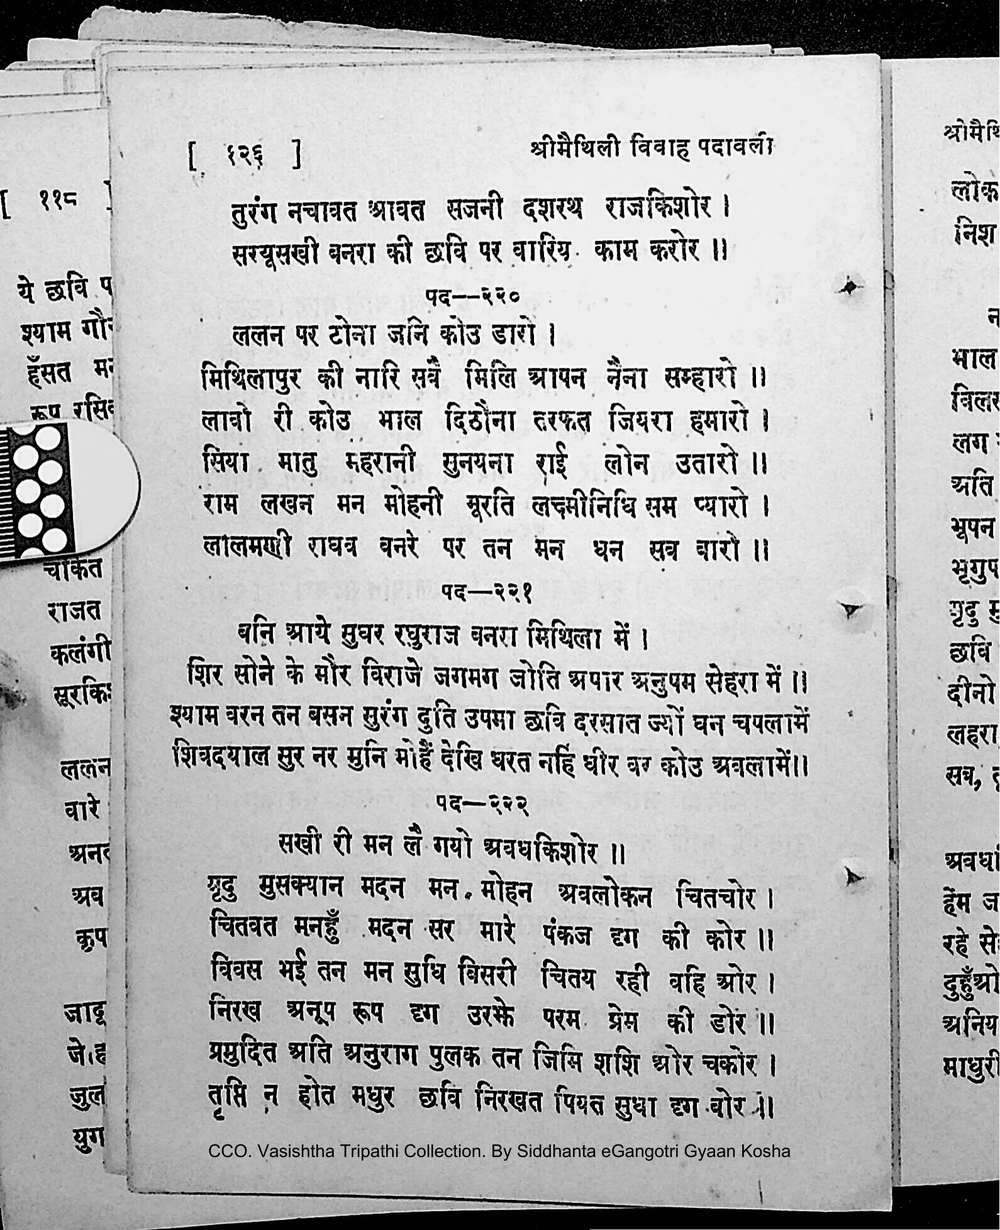 [ १२६ ] श्रीमैथिली विवाह पदावली
तुरंग नचावत आवत सजनी दशरथ राजकिशोर ।
सरयूसखी बनरा की छवि पर वारिय काम करोर ॥
पद--२२०
ललन पर टोना जनि कोउ डारो ।
मिथिलापुर की नारि सबै मिलि आपन नैना सम्हारो ॥
लावो री कोउ भाल दिठौना तरफत जियरा हमारो ।
सिया मातु महरानी सुनयना राई लोन उतारो ॥
राम लखन मन मोहनी मूरति लक्ष्मीनिधि सम प्यारो ।
लालमणी राघव बनरे पर तन मन धन सब वारो ॥
पद—२२१
बनि आये सुघर रघुराज बनरा मिथिला में ।
शिर सोने के मौर विराजे जगमग जोति अपार अनुपम सेहरा में ॥
श्याम वरन तन बसन सुरंग दुति उपमा छवि दरसात ज्यों घन चपलामें
शिवदयाल सुर नर मुनि मोहैं देखि धरत नहिं धीर वर कोउ अवलामें॥
पद—२२२
सखी री मन लै गयो अवधकिशोर ॥
मृदु मुसक्यान मदन मन मोहन अवलोकन चितचोर ।
चितवत मनहुँ मदन सर मारे पंकज दृग की कोर ॥
विवस भई तन मन सुधि बिसरी चितय रही वहि ओर ।
निरख अनूप रूप दृग उरझे परम प्रेम की डोर ॥
प्रमुदित अति अनुराग पुलक तन जिमि शशि ओर चकोर ।
तृप्ति न होत मधुर छवि निरखत पियत सुधा दृग बोर ॥
CCO. Vasishtha Tripathi Collection. By Siddhanta eGangotri Gyaan Kosha
[ ११८ ]
ये छवि
श्याम
हँसत
चकित
राजत
कलंगी
ललन
वारे
अब
जादू
युग
लोक
निश
भाल
लग
अति
भूषन
मृदु
छवि
दीनो
लहरा
सब,
रहे
माधुरी